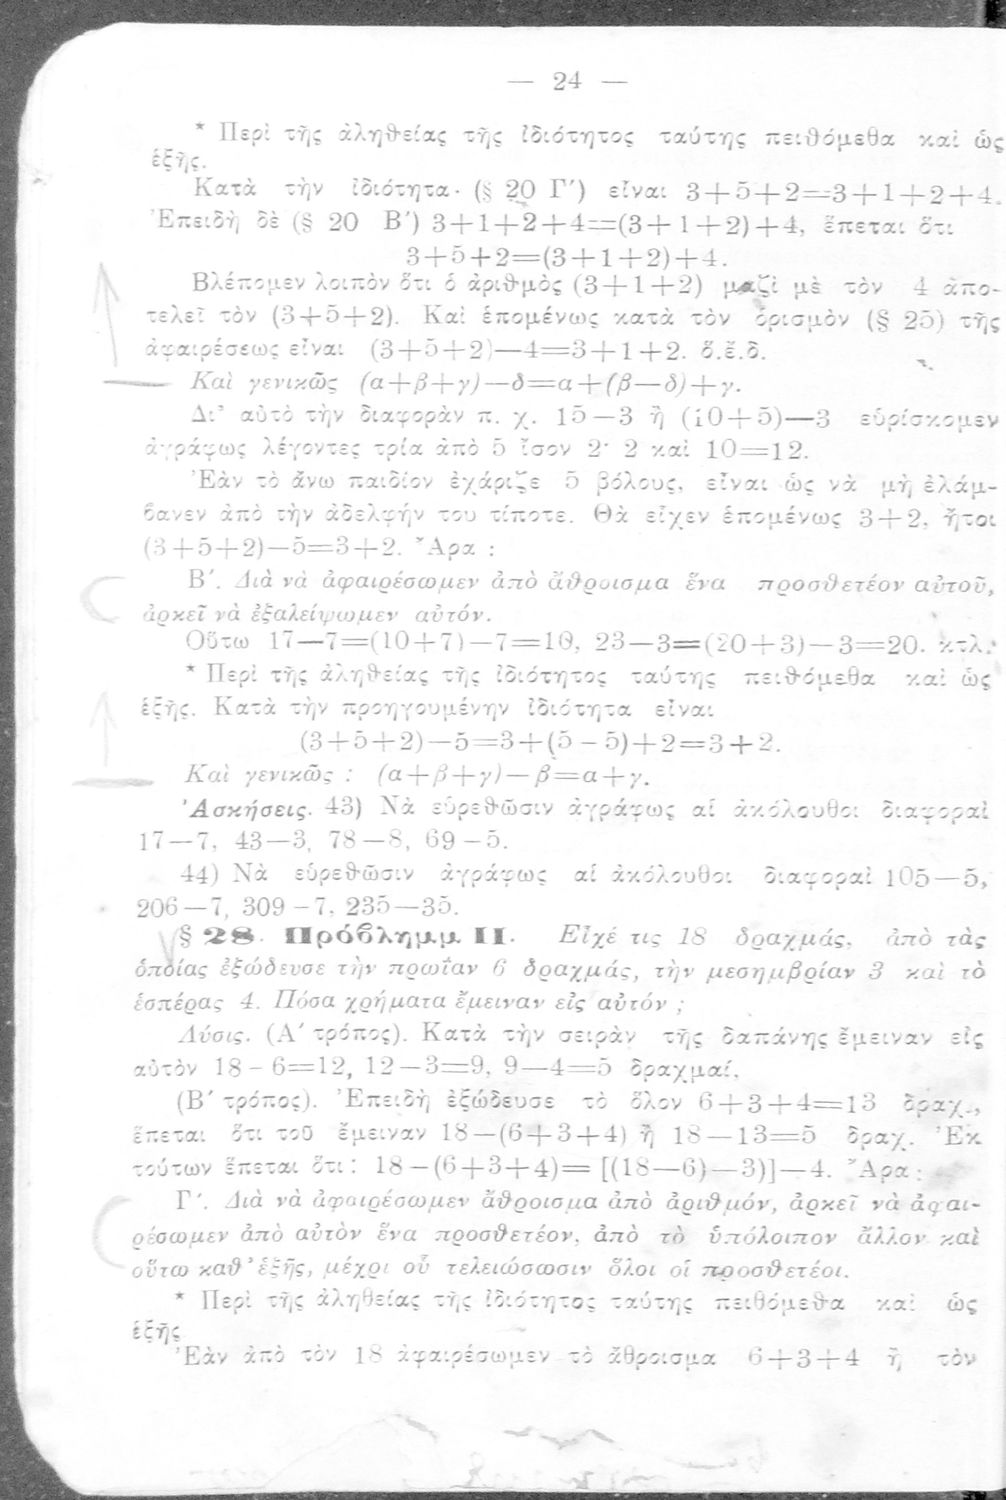 — 24 —
* Περὶ τῆς ἀληθείας τῆς ἰδιότητος ταύτης πειθόμεθα καὶ ὡς
ἑξῆς.
Κατὰ τὴν ἰδιότητα· (§ 20 Γ′) εἶναι 3+5+2=3+1+2+4.
Ἐπειδὴ δὲ (§ 20 Β′) 3+1+2+4=(3+1+2)+4, ἕπεται ὅτι
3+5+2=(3+1+2)+4.
Βλέπομεν λοιπὸν ὅτι ὁ ἀριθμὸς (3+1+2) μαζὶ μὲ τὸν 4 ἀπο-
τελεῖ τὸν (3+5+2). Καὶ ἑπομένως κατὰ τὸν ὁρισμὸν (§ 25) τῆς
ἀφαιρέσεως εἶναι (3+5+2)—4=3+1+2. ὅ.ἔ.δ.
Καὶ γενικῶς (α+β+γ)—δ=α+(β—δ)+γ.
Δι' αὐτὸ τὴν διαφορὰν π. χ. 15—3 ἢ (10+5)—3 εὑρίσκομεν
ἀγράφως λέγοντες τρία ἀπὸ 5 ἴσον 2· 2 καὶ 10=12.
Ἐὰν τὸ ἄνω παιδίον ἐχάριζε 5 βόλους, εἶναι ὡς νὰ μὴ ἐλάμ-
βανεν ἀπὸ τὴν ἀδελφήν του τίποτε. Θὰ εἶχεν ἑπομένως 3+2, ἤτοι
(3+5+2)—5=3+2. Ἄρα :
Β′. Διὰ νὰ ἀφαιρέσωμεν ἀπὸ ἄθροισμα ἕνα προσθετέον αὐτοῦ,
ἀρκεῖ νὰ ἐξαλείψωμεν αὐτόν.
Οὕτω 17—7=(10+7)—7=10, 23—3=(20+3)—3=20. κτλ.
* Περὶ τῆς ἀληθείας τῆς ἰδιότητος ταύτης πειθόμεθα καὶ ὡς
ἑξῆς. Κατὰ τὴν προηγουμένην ἰδιότητα εἶναι
(3+5+2)—5=3+(5—5)+2=3+2.
Καὶ γενικῶς : (α+β+γ)—β=α+γ.
Ἀσκήσεις. 43) Νὰ εὑρεθῶσιν ἀγράφως αἱ ἀκόλουθοι διαφοραὶ
17—7, 43—3, 78—8, 69—5.
44) Νὰ εὑρεθῶσιν ἀγράφως αἱ ἀκόλουθοι διαφοραὶ 105—5,
206—7, 309—7, 235—35.
§ 28. Πρόβλημμ ΙΙ. Εἶχέ τις 18 δραχμάς, ἀπὸ τὰς
ὁποίας ἐξώδευσε τὴν πρωΐαν 6 δραχμάς, τὴν μεσημβρίαν 3 καὶ τὸ
ἑσπέρας 4. Πόσα χρήματα ἔμειναν εἰς αὐτόν ;
Λύσις. (Α′ τρόπος). Κατὰ τὴν σειρὰν τῆς δαπάνης ἔμειναν εἰς
αὐτὸν 18—6=12, 12—3=9, 9—4=5 δραχμαί.
(Β′ τρόπος). Ἐπειδὴ ἐξώδευσε τὸ ὅλον 6+3+4=13 δραχ.,
ἕπεται ὅτι τοῦ ἔμειναν 18—(6+3+4) ἢ 18—13=5 δραχ. Ἐκ
τούτων ἕπεται ὅτι: 18—(6+3+4)= [(18—6)—3)]—4. Ἄρα:
Γ′. Διὰ νὰ ἀφαιρέσωμεν ἄθροισμα ἀπὸ ἀριθμόν, ἀρκεῖ νὰ ἀφαι-
ρέσωμεν ἀπὸ αὐτὸν ἕνα προσθετέον, ἀπὸ τὸ ὑπόλοιπον ἄλλον καὶ
οὕτω καθ' ἑξῆς, μέχρι οὗ τελειώσωσιν ὅλοι οἱ προσθετέοι.
* Περὶ τῆς ἀληθείας τῆς ἰδιότητος ταύτης πειθόμεθα καὶ ὡς
ἑξῆς
Ἐὰν ἀπὸ τὸν 18 ἀφαιρέσωμεν τὸ ἄθροισμα 6+3+4 ἢ τὸν